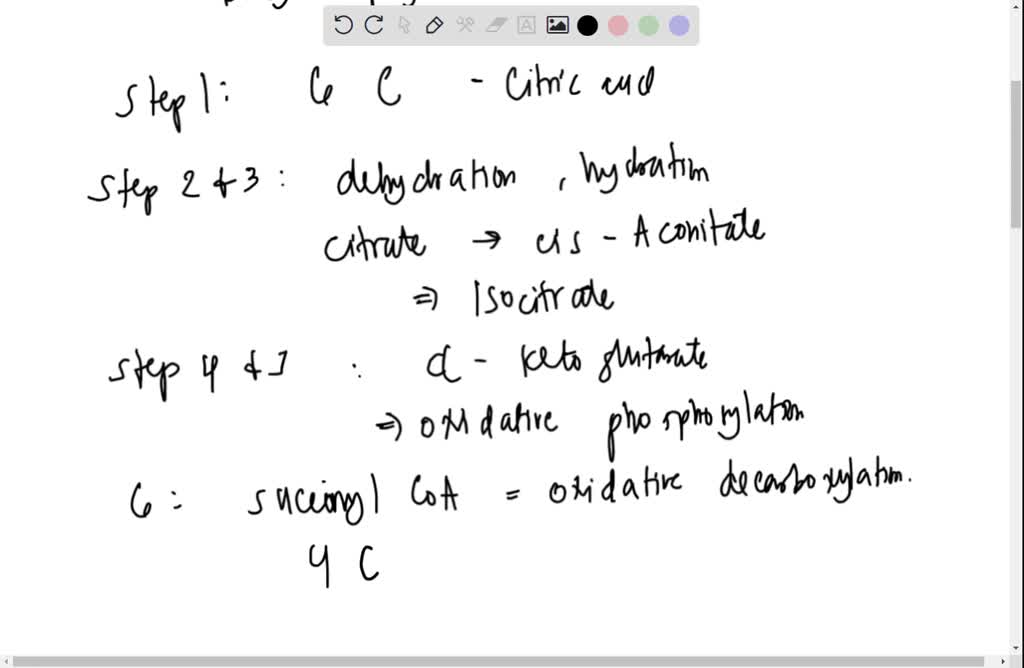 Step 1: 6 C - Citric acid
Step 2 & 3: dehydration, hydration
citrate → cis - Aconitate
⇒ Isocitrate
Step 4 & 5 : α - keto glutarate
⇒ oxidative phosphorylation
6: succinyl CoA = oxidative decarboxylation.
4 C